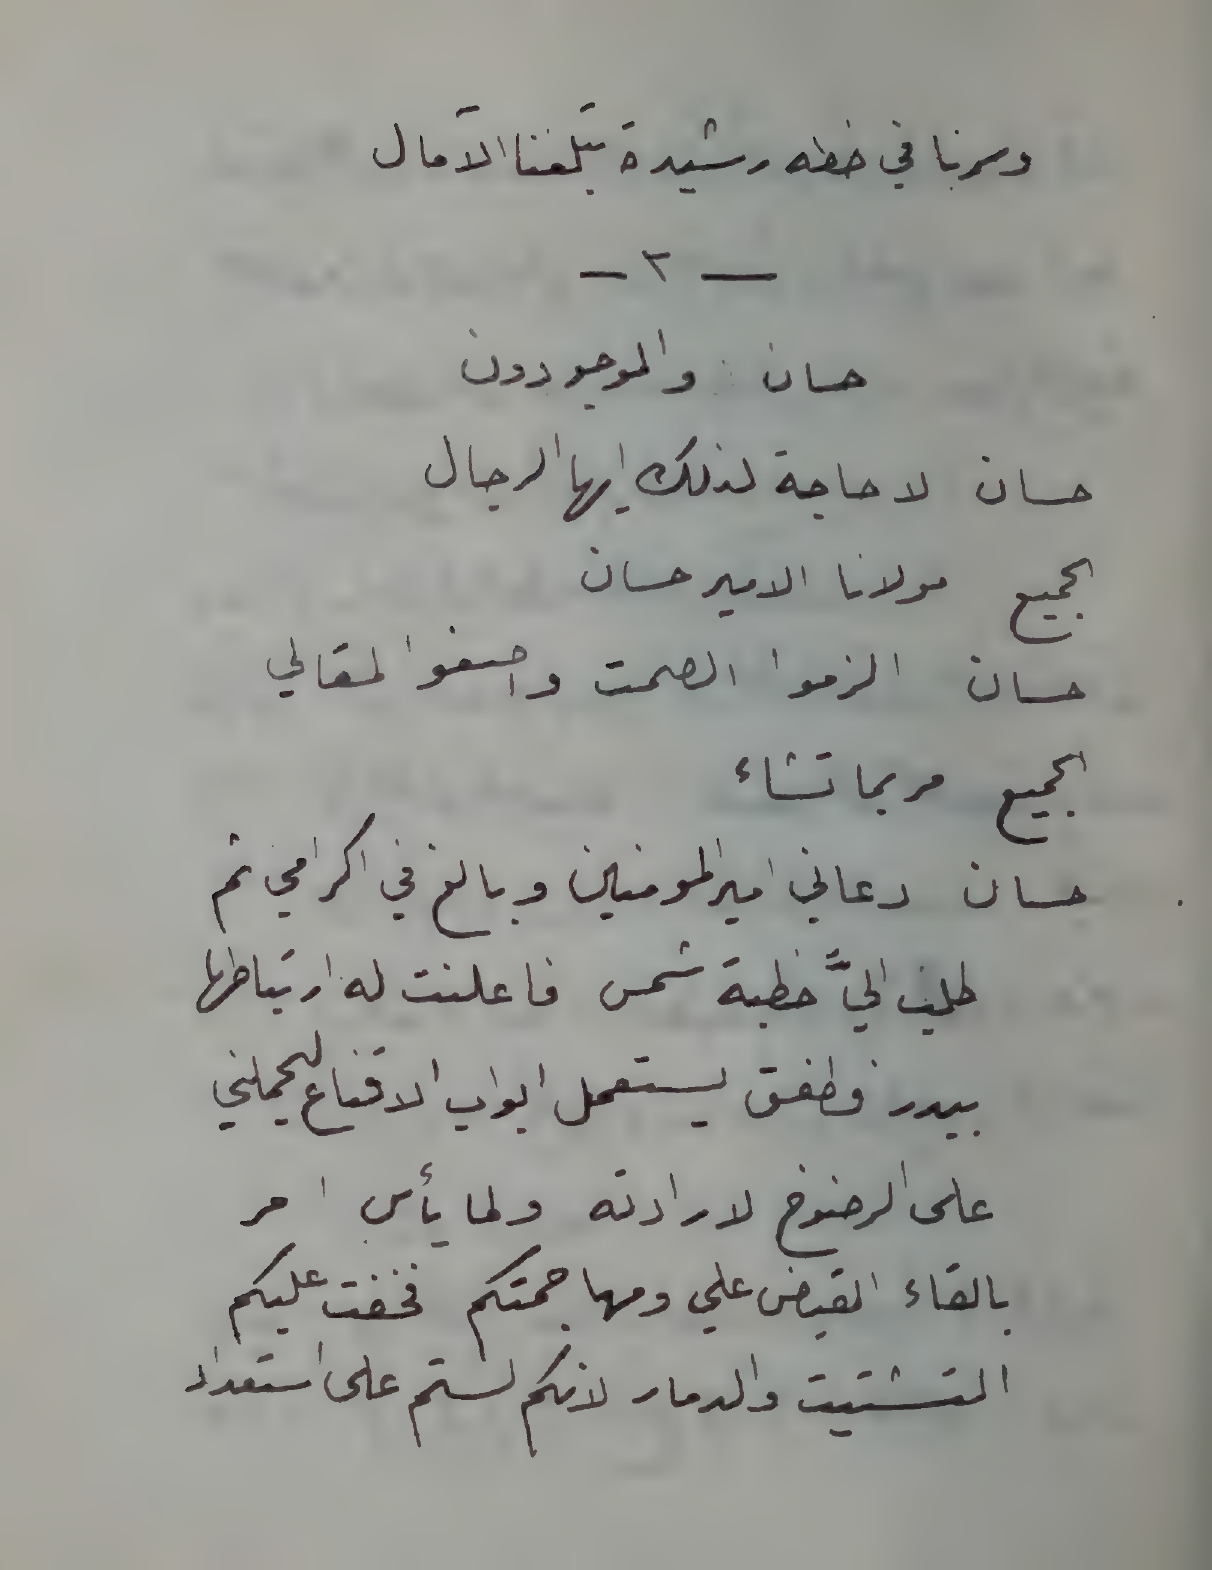 وسرنا في خطه رشيدة تبلغنا الآمال
— ٣ —
حسان والموجودون
حسان لا حاجة لذلك ايها الرجال
الجميع مولانا الامير حسان
حسان الزموا الصمت واصغوا لمقالي
الجميع مر بما تشاء
حسان دعاني امير المومنين وبالغ في اكرامي ثم
طلب اليَّ خطبة شمس فاعلنت له ارتباطها
ببدر فطفق يستعمل ابواب الاقناع ليحملني
على الرضوخ لارادته ولما يأس امر
بالقاء القبض علي ومهاجمتكم فخفت عليكم
التشتيت والدمار لانكم لستم على استعداد